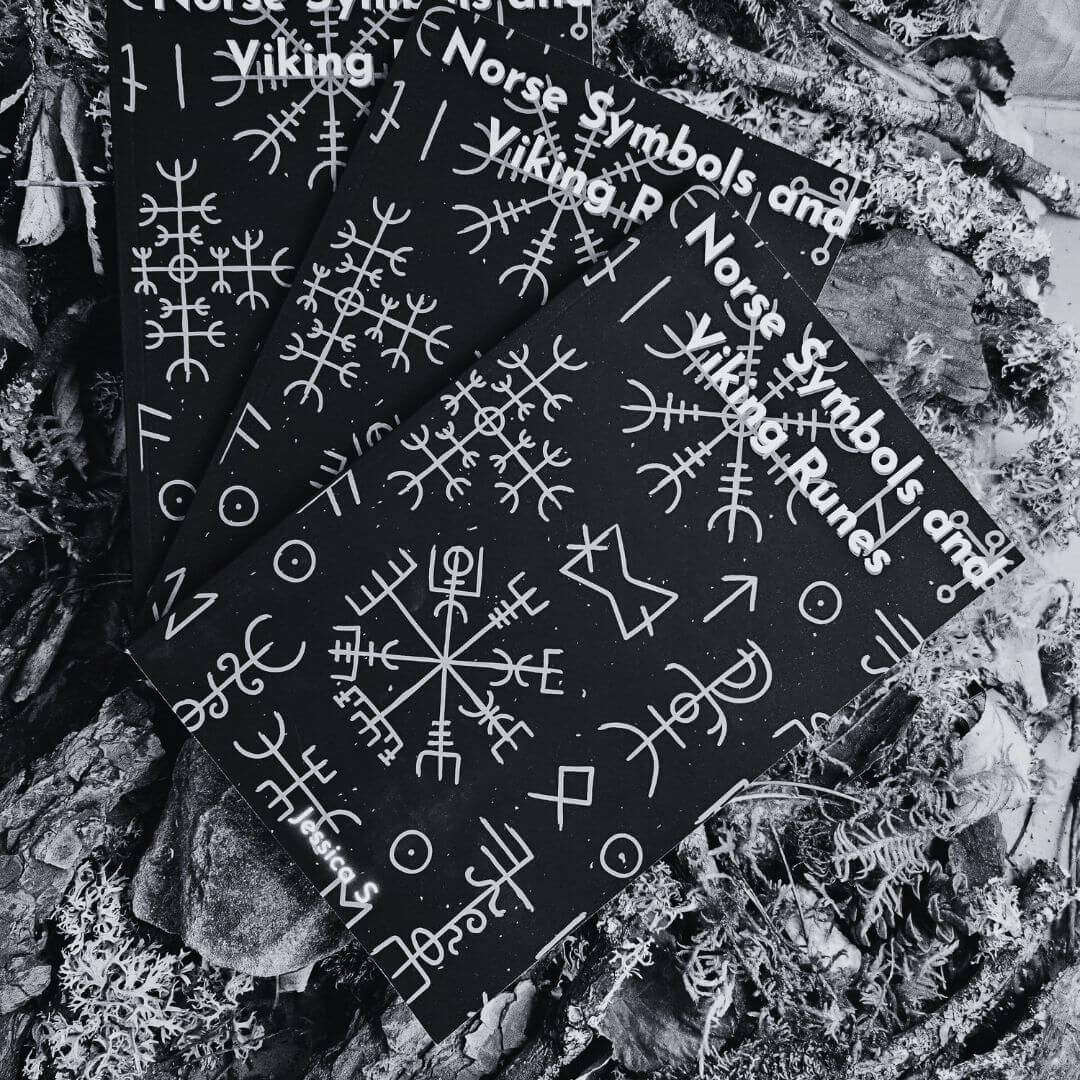 Norse Symbols and
Viking
Norse Symbols and
Viking R
Norse Symbols and
Viking Runes
Jessica S